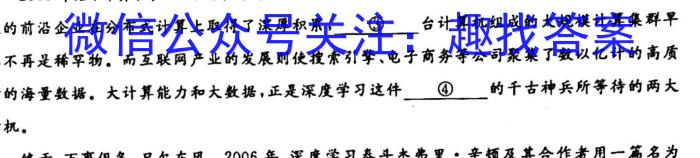 的前沿企业在分布式计算上取得了深厚积累，③台计算机组成的大规模计算集群早
微信公众号关注：趣找答案
不再是稀罕物。而互联网产业的发展则使搜索引擎、电子商务等公司聚集了数以亿计的高质
的海量数据。大计算能力和大数据，正是深度学习这件④的千古神兵所等待的两大
机。
万事俱备，只欠东风。2006年，深度学习泰斗杰弗里·辛顿及其合作者用一篇名为